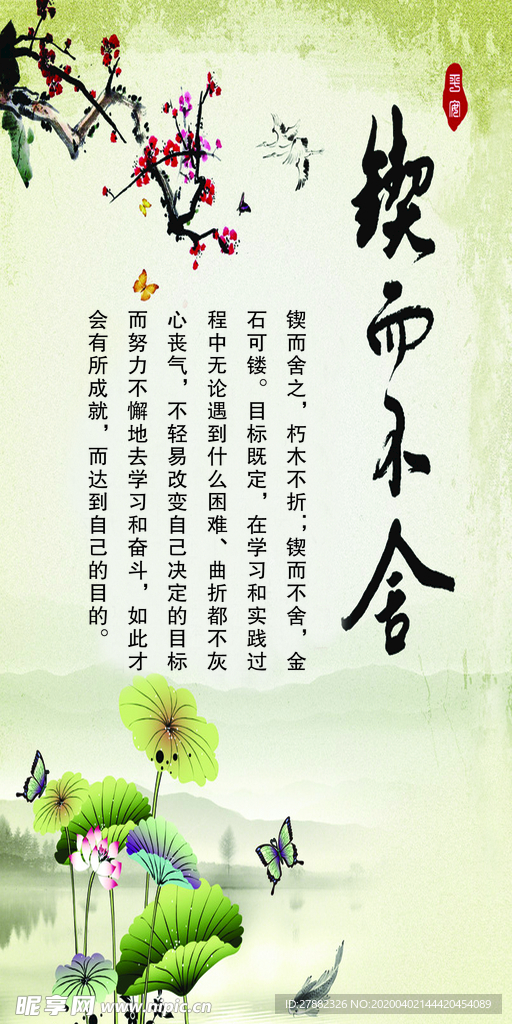 平安
锲而不舍
锲而舍之，朽木不折；锲而不舍，金
石可镂。目标既定，在学习和实践过
程中无论遇到什么困难、曲折都不灰
心丧气，不轻易改变自己决定的目标
而努力不懈地去学习和奋斗，如此才
会有所成就，而达到自己的目的。
昵享网 www.nipic.cn
ID:27882326 NO:20200402144420454089